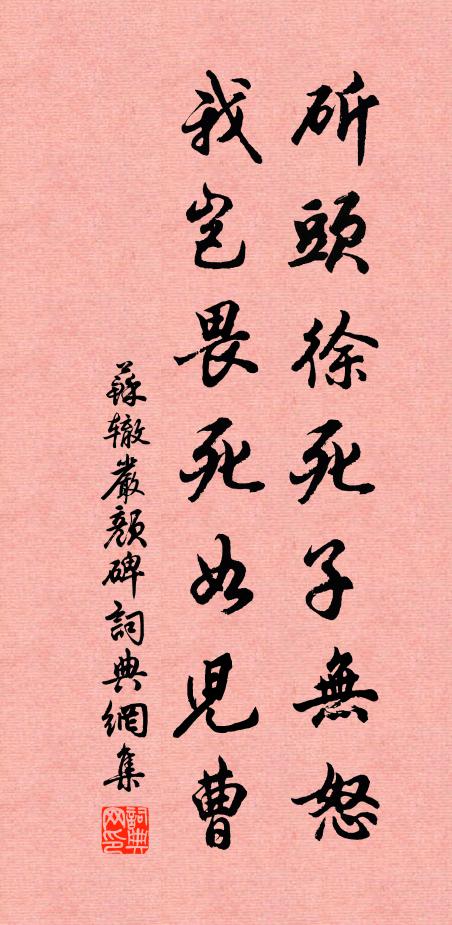 斫頭徐死子無怒
我豈畏死如兒曹
蘇轍嚴顏碑詞典網集
詞典
网印